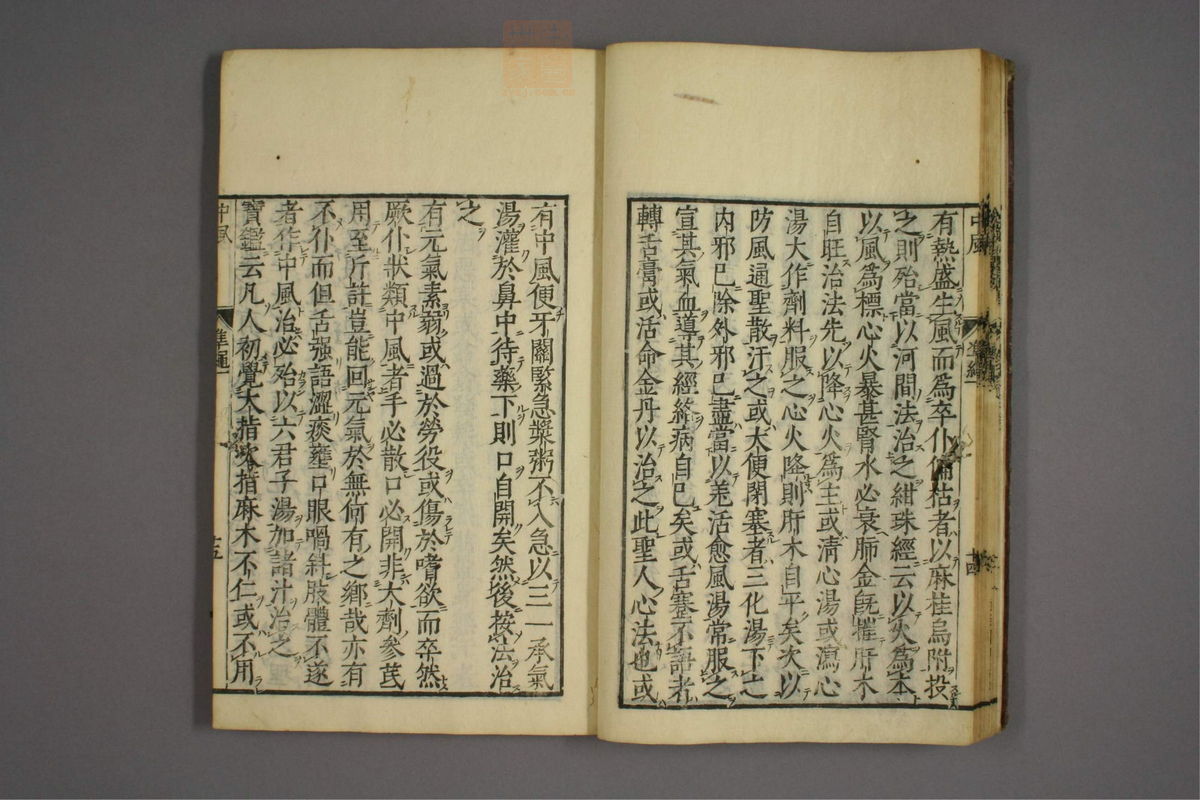 中風
有熱盛生風而為卒仆偏枯者以麻桂烏附投
之則殆當以河間法治之紺珠經云以火為本
以風爲標心火暴甚腎水必衰肺金旣摧肝木
自旺治法先以降心火爲主或淸心湯或瀉心
湯大作劑料服之心火降則肝木自平矣次以
防風通聖散汗之或大便閉塞者三化湯下之
内邪已除外邪已盡當以羌活愈風湯常服之
宣其氣血導其經絡病自已矣或舌蹇不語者
轉舌膏或活命金丹以治之此聖人心法也或
有中風便牙關緊急漿粥不入急以三一承氣
湯灌於鼻中待藥下則口自開矣然後按法治
之
有元氣素弱或過於勞役或傷於嗜欲而卒然
厥仆狀類中風者手必散口必開非大劑參芪
用至斤許豈能回元氣於無何有之鄉哉亦有
不仆而但舌强語澀痰壅口眼喎斜肢體不遂
者作中風治必殆以六君子湯加諸汁治之
寶鑑云凡人初覺大指次指麻木不仁或不用
中風
準繩
十五